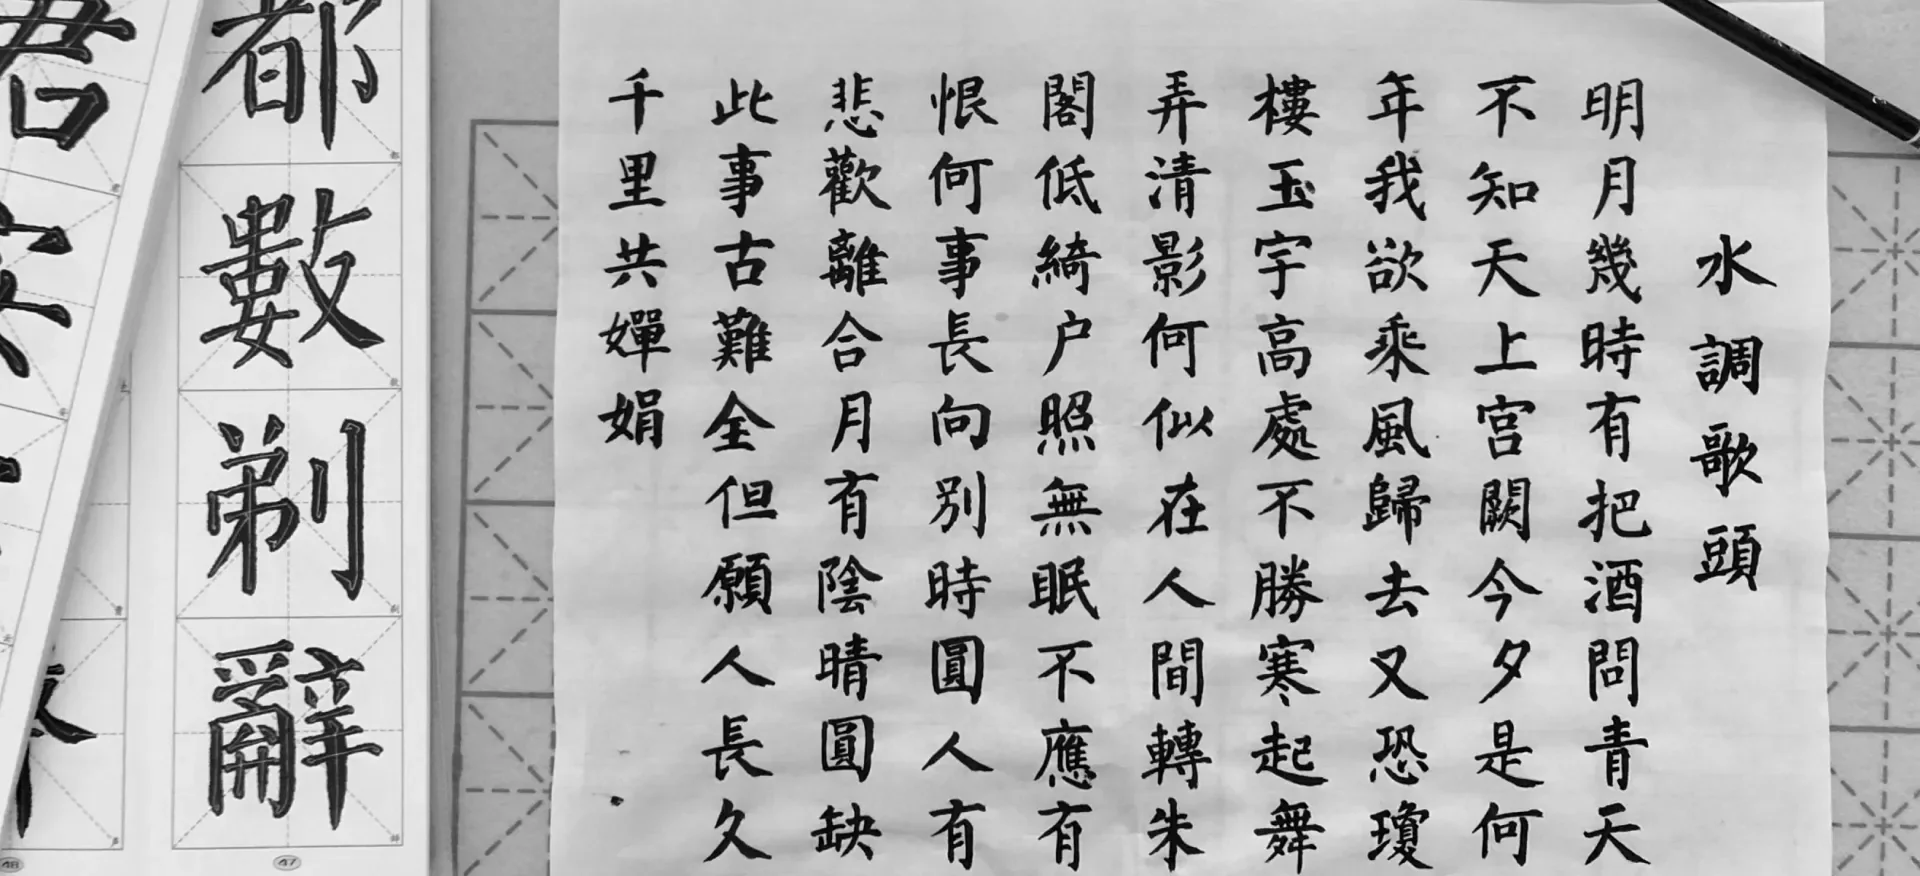 水調歌頭
明月幾時有把酒問青天
不知天上宮闕今夕是何
年我欲乘風歸去又恐瓊
樓玉宇高處不勝寒起舞
弄清影何似在人間轉朱
閣低綺户照無眠不應有
恨何事長向别時圓人有
悲歡離合月有陰晴圓缺
此事古難全但願人長久
千里共嬋娟
都數剃辭
47
48